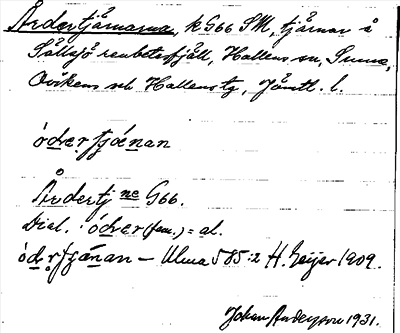 Årdertjärnarna, k G66 SM, tjärnar å
Sällsjö renbetesfjäll, Hallens sn, Sunne,
Ovikens och Hallens tg, Jämtl. l.
óde̱r̥tjǽnan
Årdertj ne G66.
Dial. óder (fem.) = al.
óde̱r̥tjǽnan – Ulma 585:2 H. Geijer 1909.
Johan Anderson 1931.